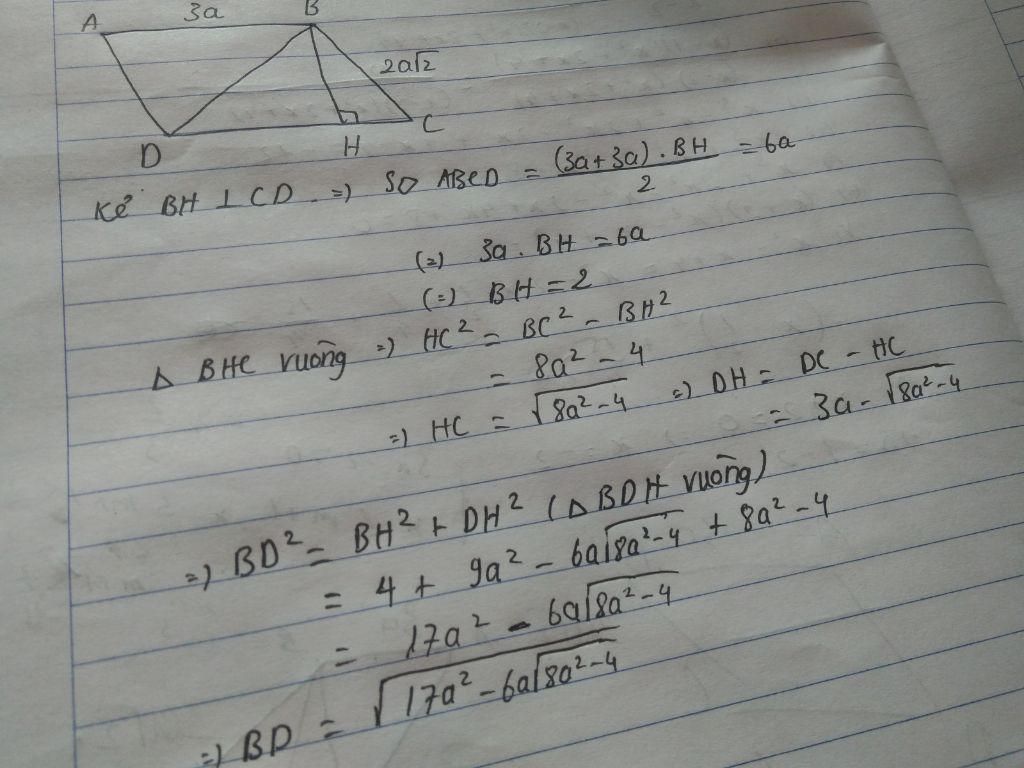 A 3a B
2a√2
D H C
Kẻ BH ⊥ CD. =) SD ABCD = (3a+3a).BH / 2 = 6a
(=) 3a. BH = 6a
(=) BH = 2
Δ BHC vuông =) HC² = BC² - BH²
= 8a² - 4
=) HC = √8a²-4 =) DH = DC - HC
= 3a - √8a²-4
=) BD² = BH² + DH² (Δ BDH vuông)
= 4 + 9a² - 6a√8a²-4 + 8a² - 4
= 17a² - 6a√8a²-4
=) BD = √17a² - 6a√8a²-4